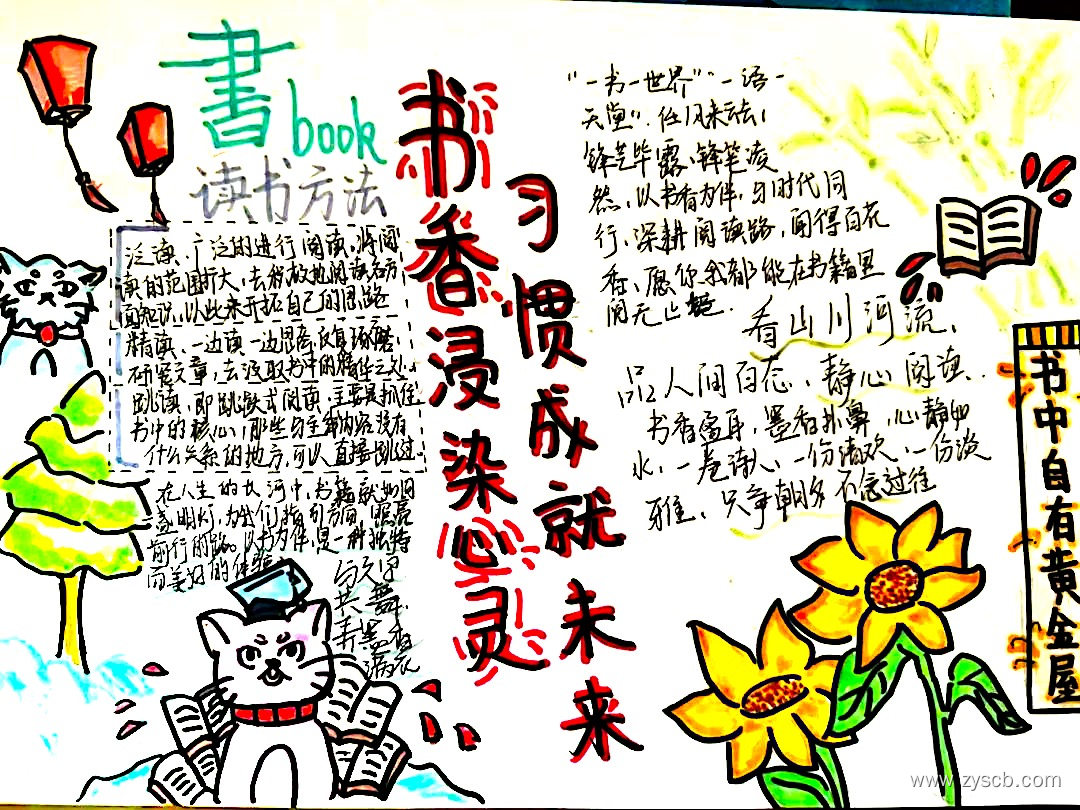 書
book
读书方法
泛读、广泛的进行阅读，将阅
读的范围扩大，去有效地阅读各方
面知识，以此来开拓自己的思路
精读、一边读一边思考，反复琢磨，
研究文章，去汲取书中的精华之处。
跳读，即跳跃式阅读，主要是抓住
书中的核心，那些与全篇内容没有
什么关系的地方，可以直接跳过。
在人生的长河中，书籍就如同
明灯，为我们指引方向，照亮
前行的路。以书为伴，是一种独特
而美好的体验
与文字
共舞，
弄墨香
满衣
书香浸染心灵
习惯成就未来
“一书一世界”“一语一
天堂”．任风来去，
锋芒毕露、锋笔凌
然，以书香为伴，与时代同
行，深耕阅读路，闻得百花
香，愿你我都能在书籍里
阅无止
看山川河流、
品人间百态、静心阅读..
书香盈耳，墨香扑鼻，心静如
水，一卷诗人、一份清欢、一份淡
雅、只争朝夕 不念过往
书中自有黄金屋
www.zyscb.com